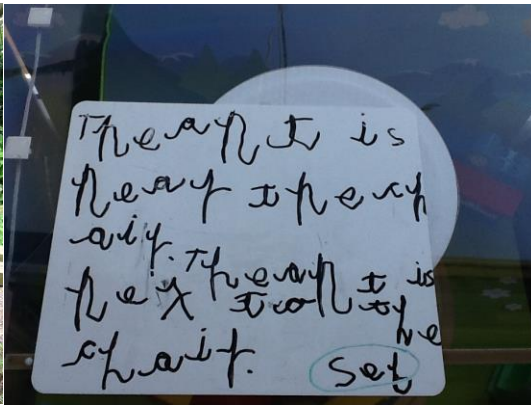 The ant is
near the ch
air. The ant is
next to the
chair. Seb